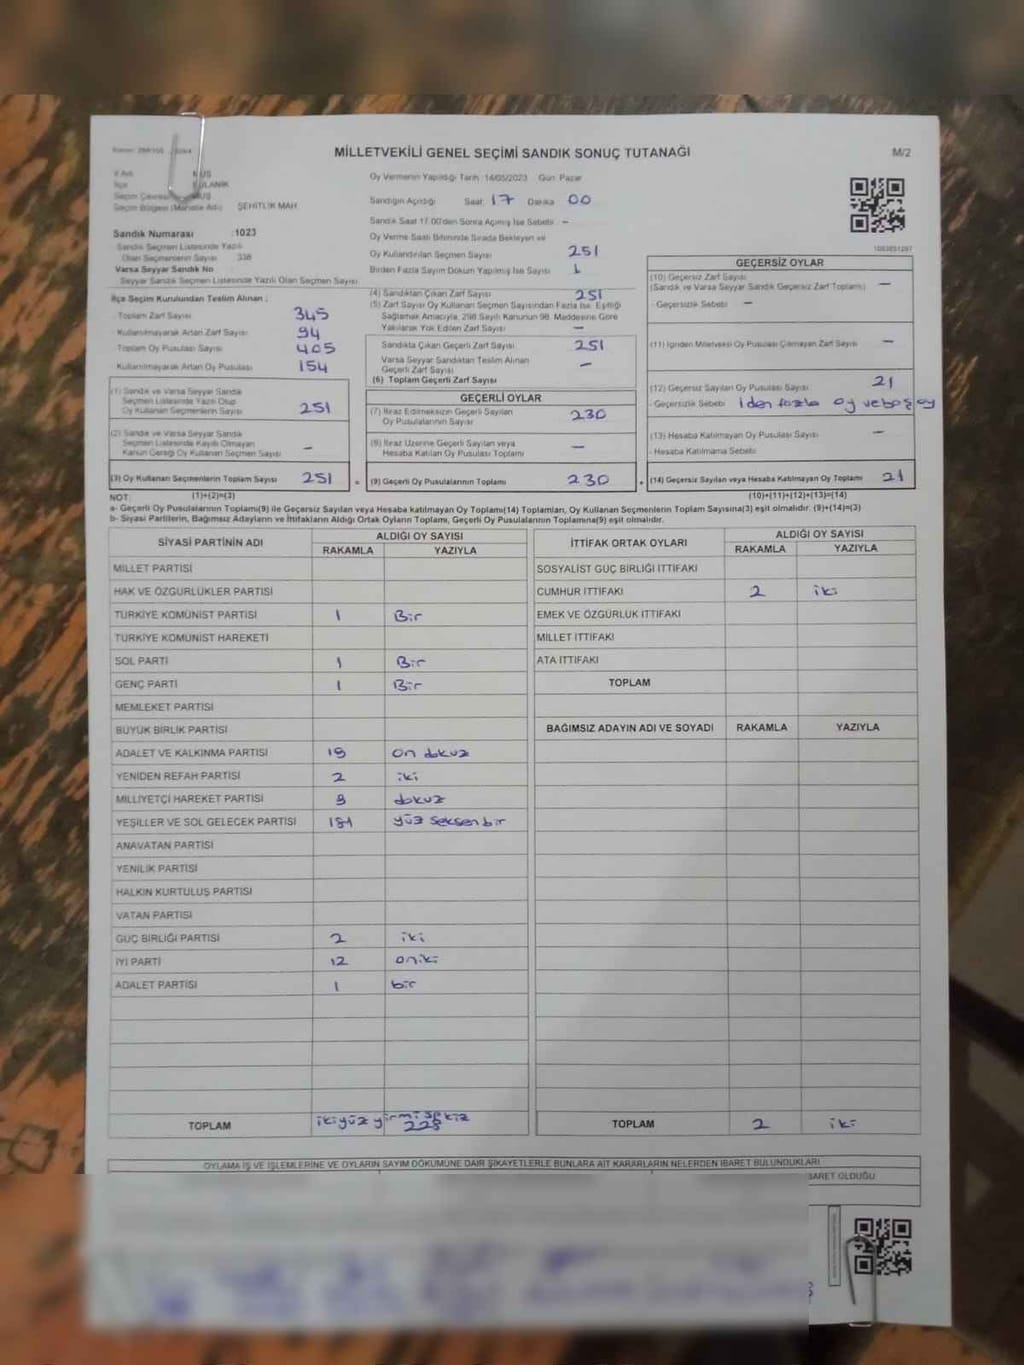 MİLLETVEKİLİ GENEL SEÇİMİ SANDIK SONUÇ TUTANAĞI
M/2
İl Adı MUŞ
İlçe BULANIK
Seçim Çevresi MUŞ
Seçim Bölgesi (Mahalle Adı) ŞEHİTLİK MAH.
Sandık Numarası :1023
Sandık Seçmen Listesinde Yazılı
Olan Seçmenlerin Sayısı 338
Varsa Seyyar Sandık No
Seyyar Sandık Seçmen Listesinde Yazılı Olan Seçmen Sayısı
İlçe Seçim Kurulundan Teslim Alınan ;
- Toplam Zarf Sayısı 345
- Kullanılmayarak Artan Zarf Sayısı 94
Toplam Oy Pusulası Sayısı 405
- Kullanılmayarak Artan Oy Pusulası 154
(1) Sandık ve Varsa Seyyar Sandık
Seçmen Listesinde Yazılı Olup
Oy Kullanan Seçmenlerin Sayısı 251
(2) Sandık ve Varsa Seyyar Sandık
Seçmen Listesinde Kayıtlı Olmayan
Kanun Gereği Oy Kullanan Seçmen Sayısı -
(3) Oy Kullanan Seçmenlerin Toplam Sayısı 251 =
(1)+(2)=(3)
Oy Vermenin Yapıldığı Tarih :14/05/2023 Gün: Pazar
Sandığın Açıldığı Saat: 17 Dakika 00
Sandık Saat 17.00'den Sonra Açılmış İse Sebebi: -
Oy Verme Saati Bitiminde Sırada Bekleyen ve
Oy Kullandırılan Seçmen Sayısı 251
Birden Fazla Sayım Döküm Yapılmış İse Sayısı 1
(4) Sandıktan Çıkan Zarf Sayısı 251
(5) Zarf Sayısı Oy Kullanan Seçmen Sayısından Fazla İse, Eşitliği
Sağlamak Amacıyla, 298 Sayılı Kanunun 98. Maddesine Göre
Yakılarak Yok Edilen Zarf Sayısı -
Sandıkta Çıkan Geçerli Zarf Sayısı 251
Varsa Seyyar Sandıktan Teslim Alınan
Geçerli Zarf Sayısı -
(6) Toplam Geçerli Zarf Sayısı
GEÇERLİ OYLAR
(7) İtiraz Edilmeksizin Geçerli Sayılan
Oy Pusulalarının Sayısı 230
(8) İtiraz Üzerine Geçerli Sayılan veya
Hesaba Katılan Oy Pusulası Toplamı -
(9) Geçerli Oy Pusulalarının Toplamı 230 +
1003851297
GEÇERSİZ OYLAR
(10) Geçersiz Zarf Sayısı
(Sandık ve Varsa Seyyar Sandık Geçersiz Zarf Toplamı) -
- Geçersizlik Sebebi -
(11) İçinden Milletvekili Oy Pusulası Çıkmayan Zarf Sayısı -
(12) Geçersiz Sayılan Oy Pusulası Sayısı 21
- Geçersizlik Sebebi 1 den fazla oy ve boş oy
(13) Hesaba Katılmayan Oy Pusulası Sayısı -
- Hesaba Katılmama Sebebi
(14) Geçersiz Sayılan veya Hesaba Katılmayan Oy Toplamı 21
(10)+(11)+(12)+(13)=(14)
NOT:
a- Geçerli Oy Pusulalarının Toplamı(9) ile Geçersiz Sayılan veya Hesaba Katılmayan Oy Toplamı(14) Toplamları, Oy Kullanan Seçmenlerin Toplam Sayısına(3) eşit olmalıdır. (9)+(14)=(3)
b- Siyasi Partilerin, Bağımsız Adayların ve İttifakların Aldığı Ortak Oyların Toplamı, Geçerli Oy Pusulalarının Toplamına(9) eşit olmalıdır.
SİYASİ PARTİNİN ADI ALDIĞI OY SAYISI
RAKAMLA YAZIYLA
MİLLET PARTİSİ
HAK VE ÖZGÜRLÜKLER PARTİSİ
TÜRKİYE KOMÜNİST PARTİSİ 1 Bir
TÜRKİYE KOMÜNİST HAREKETİ
SOL PARTİ 1 Bir
GENÇ PARTİ 1 Bir
MEMLEKET PARTİSİ
BÜYÜK BİRLİK PARTİSİ
ADALET VE KALKINMA PARTİSİ 19 on dokuz
YENİDEN REFAH PARTİSİ 2 iki
MİLLİYETÇİ HAREKET PARTİSİ 9 dokuz
YEŞİLLER VE SOL GELECEK PARTİSİ 181 yüz seksen bir
ANAVATAN PARTİSİ
YENİLİK PARTİSİ
HALKIN KURTULUŞ PARTİSİ
VATAN PARTİSİ
GÜÇ BİRLİĞİ PARTİSİ 2 iki
İYİ PARTİ 12 oniki
ADALET PARTİSİ 1 bir
TOPLAM ikiyüz yirmi sekiz
228
İTTİFAK ORTAK OYLARI ALDIĞI OY SAYISI
RAKAMLA YAZIYLA
SOSYALİST GÜÇ BİRLİĞİ İTTİFAKI
CUMHUR İTTİFAKI 2 iki
EMEK VE ÖZGÜRLÜK İTTİFAKI
MİLLET İTTİFAKI
ATA İTTİFAKI
TOPLAM
BAĞIMSIZ ADAYIN ADI VE SOYADI RAKAMLA YAZIYLA
TOPLAM 2 iki
OYLAMA İŞ VE İŞLEMLERİNE VE OYLARIN SAYIM DÖKÜMÜNE DAİR ŞİKAYETLERLE BUNLARA AİT KARARLARIN NELERDEN İBARET BULUNDUKLARI
İBARET OLDUĞU